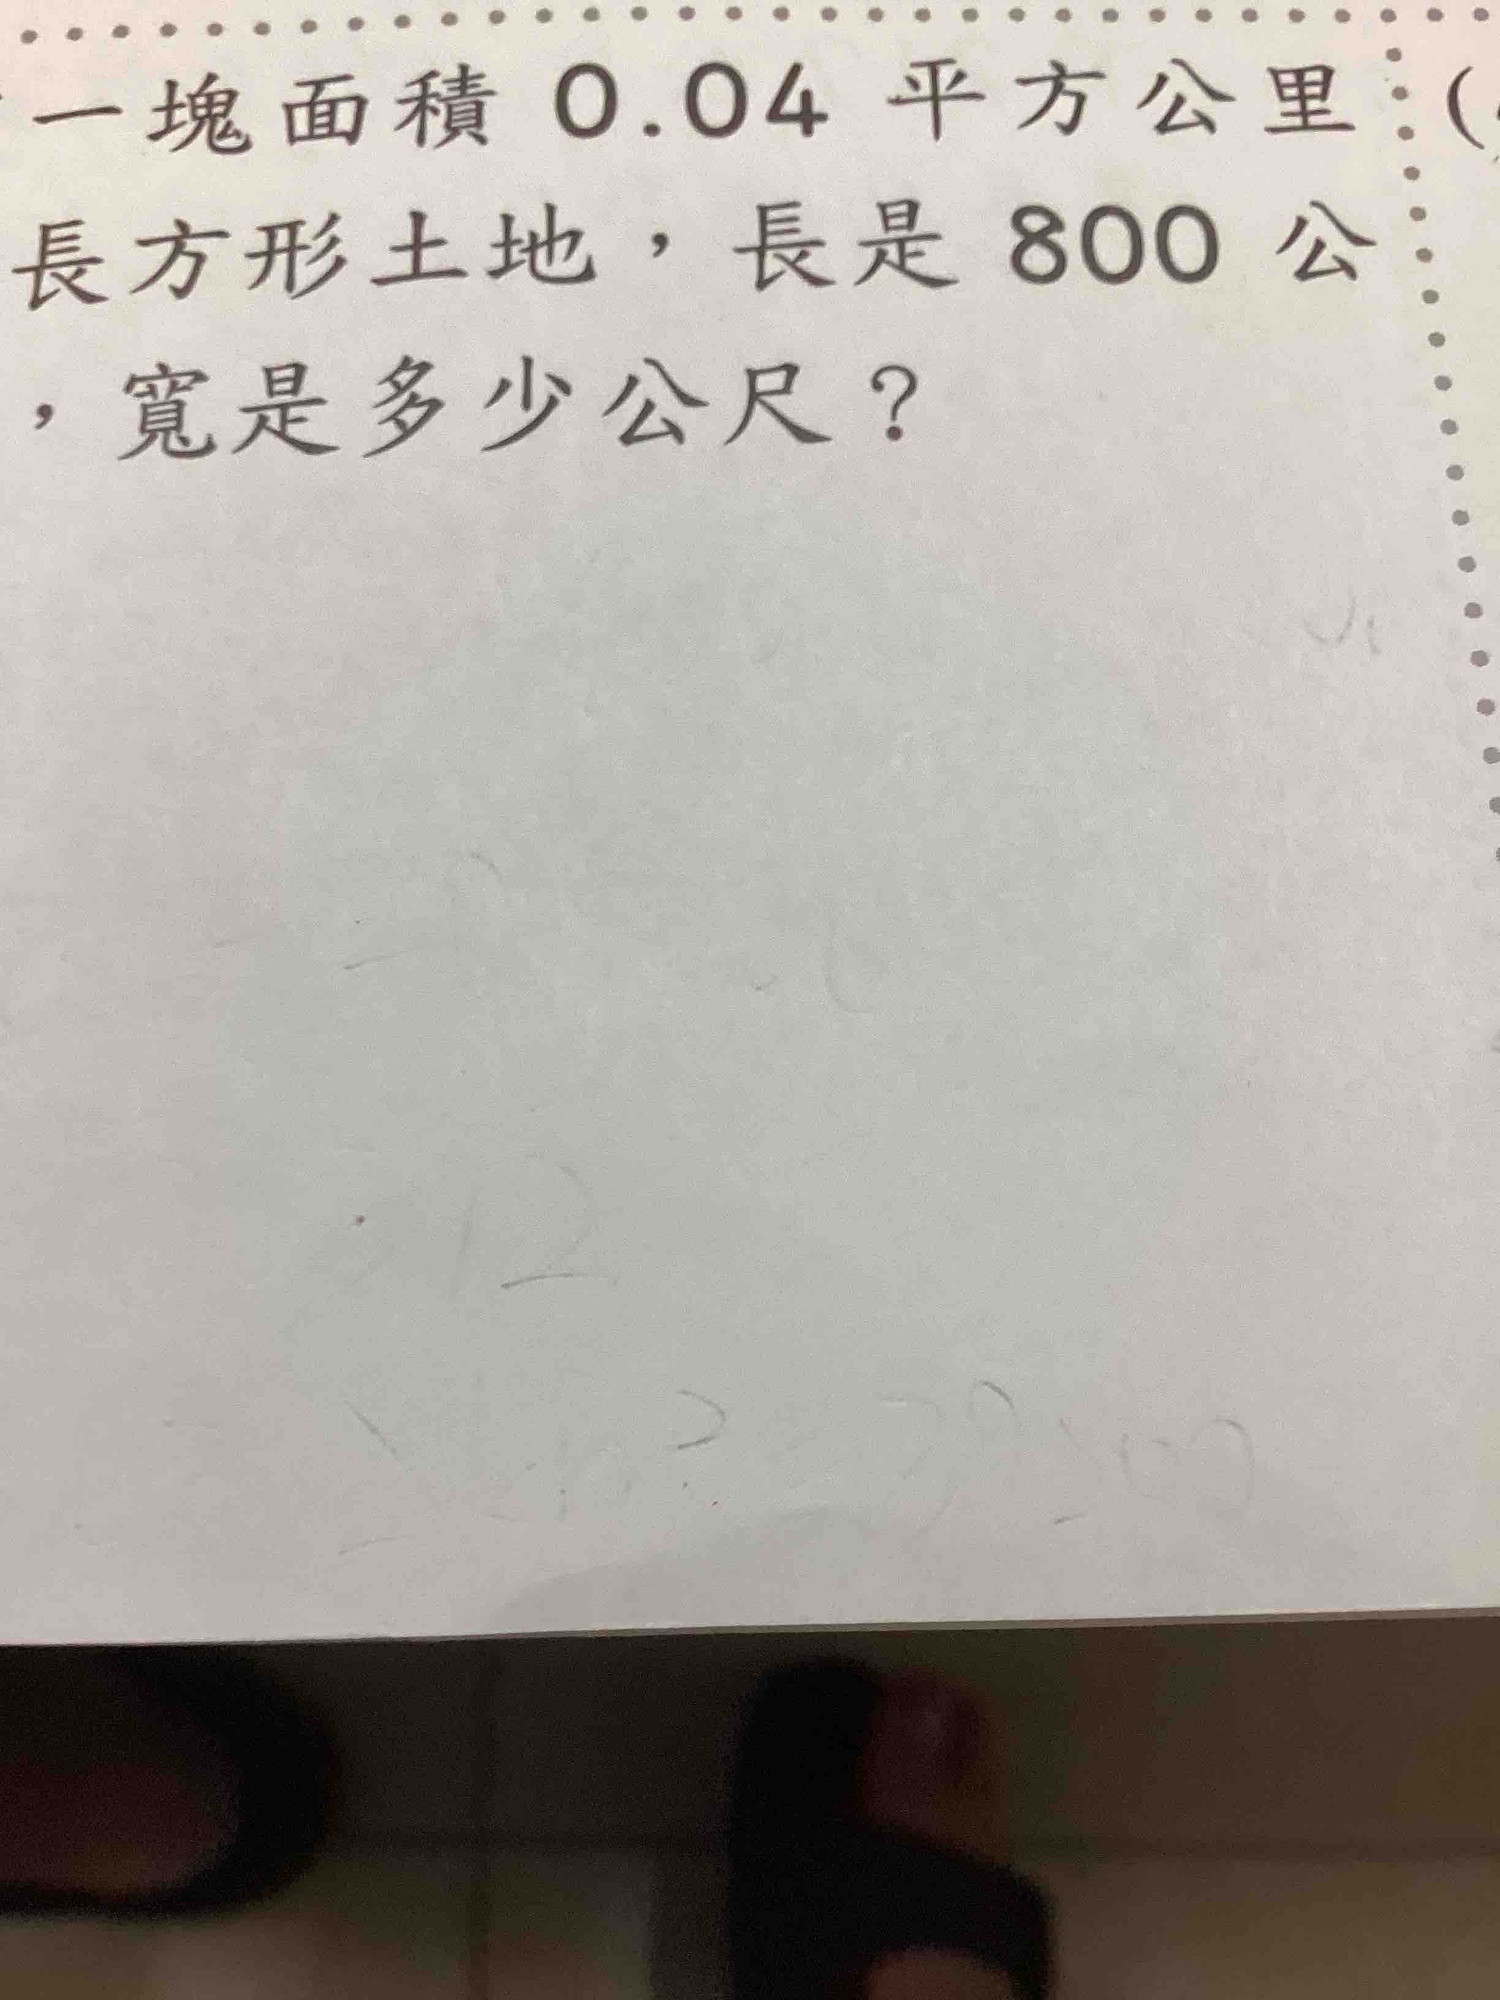 一塊面積 0.04 平方公里 (
長方形土地，長是 800 公
，寬是多少公尺？
12